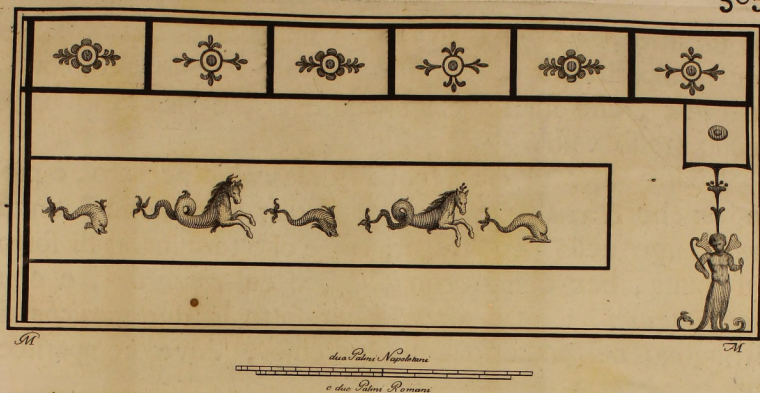 M
M
due Palmi Napoletani
e due Palmi Romani